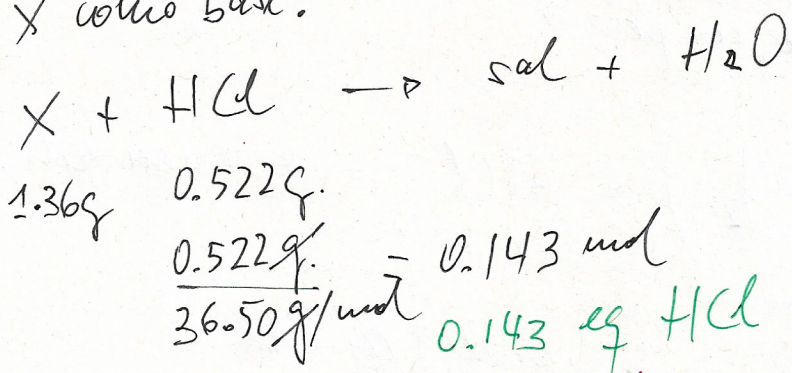 X como base.
X + HCl → sal + H2O
1.36g 0.522g.
0.522g. = 0.143 mol
36.50g/mol
0.143 eq HCl